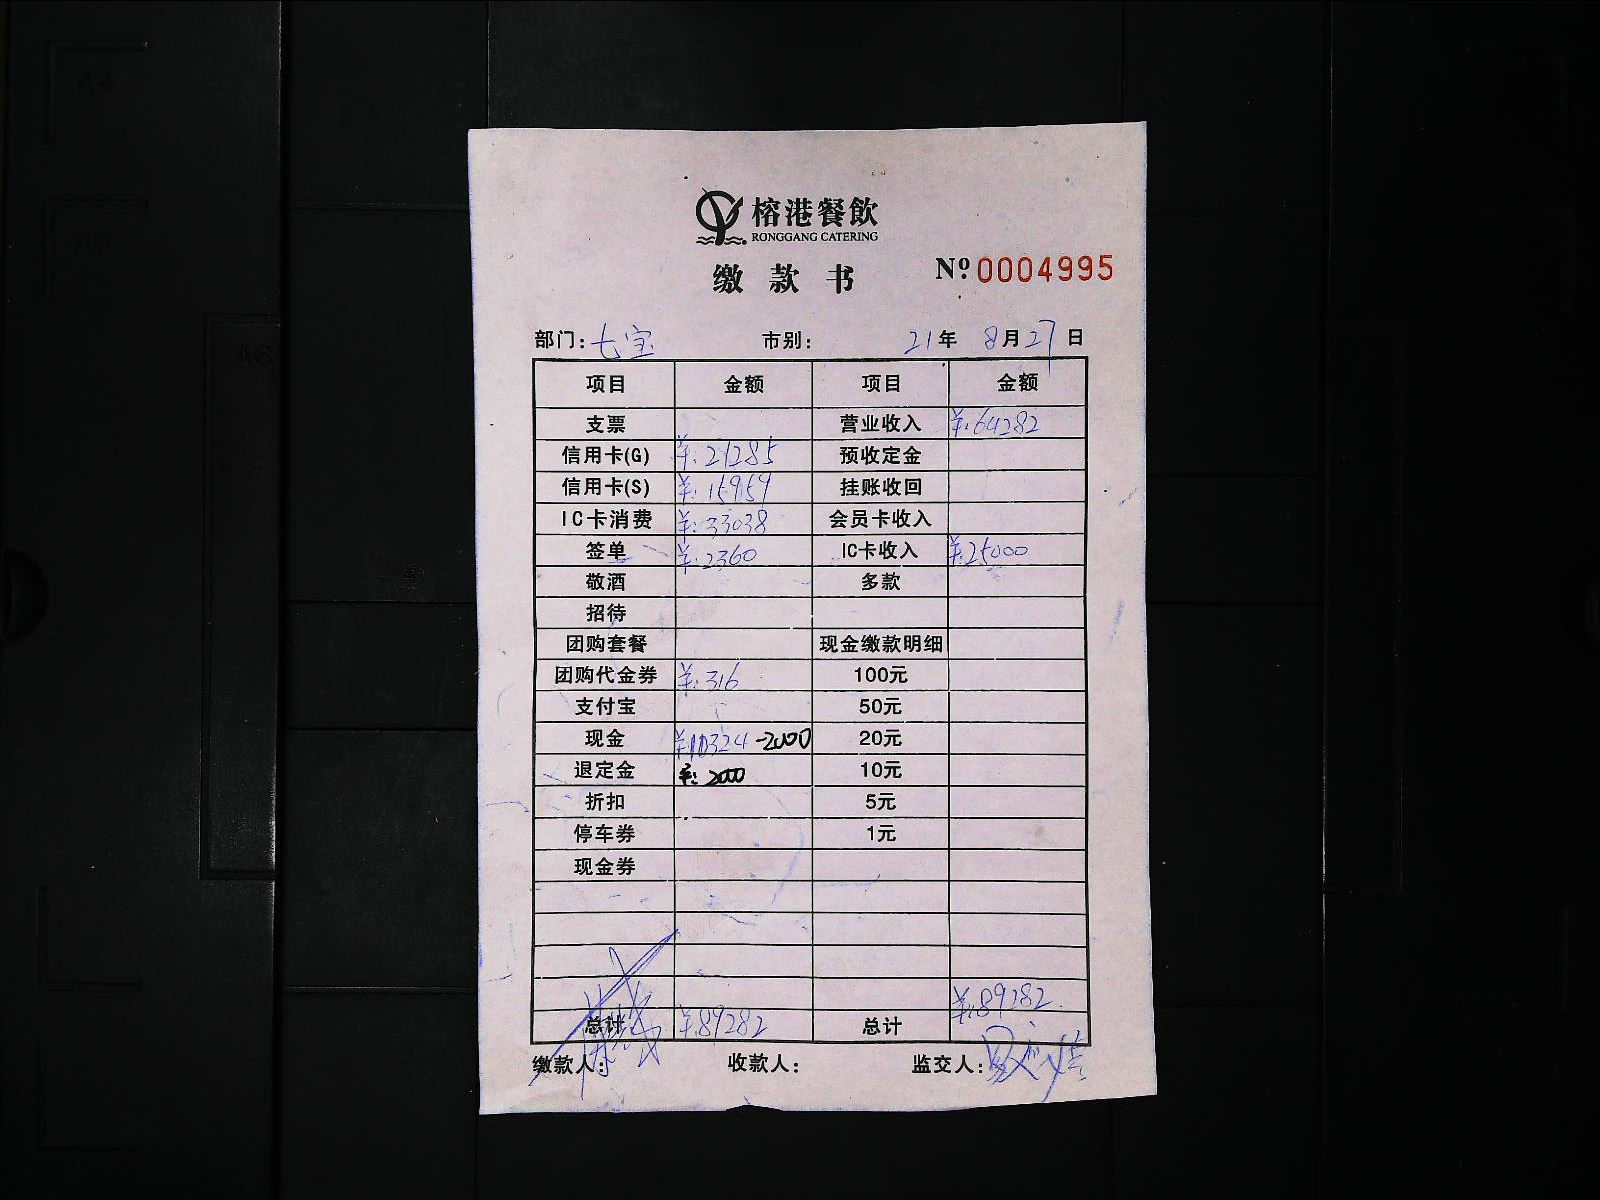 榕港餐飲
RONGGANG CATERING
缴款书 Nº 0004995
部门: 七宝 市别: 21年 8月27日
项目 金额 项目 金额
支票 营业收入 ¥:64282
信用卡(G) ¥:21285 预收定金
信用卡(S) ¥:15959 挂账收回
IC卡消费 ¥:33038 会员卡收入
签单 ¥:2360 IC卡收入 ¥:25000
敬酒 多款
招待
团购套餐 现金缴款明细
团购代金券 ¥:316 100元
支付宝 50元
现金 ¥:16324 -2000 20元
退定金 ¥:2000 10元
折扣 5元
停车券 1元
现金券
总计 ¥:89282 总计 ¥:89282.
缴款人: 收款人: 监交人: